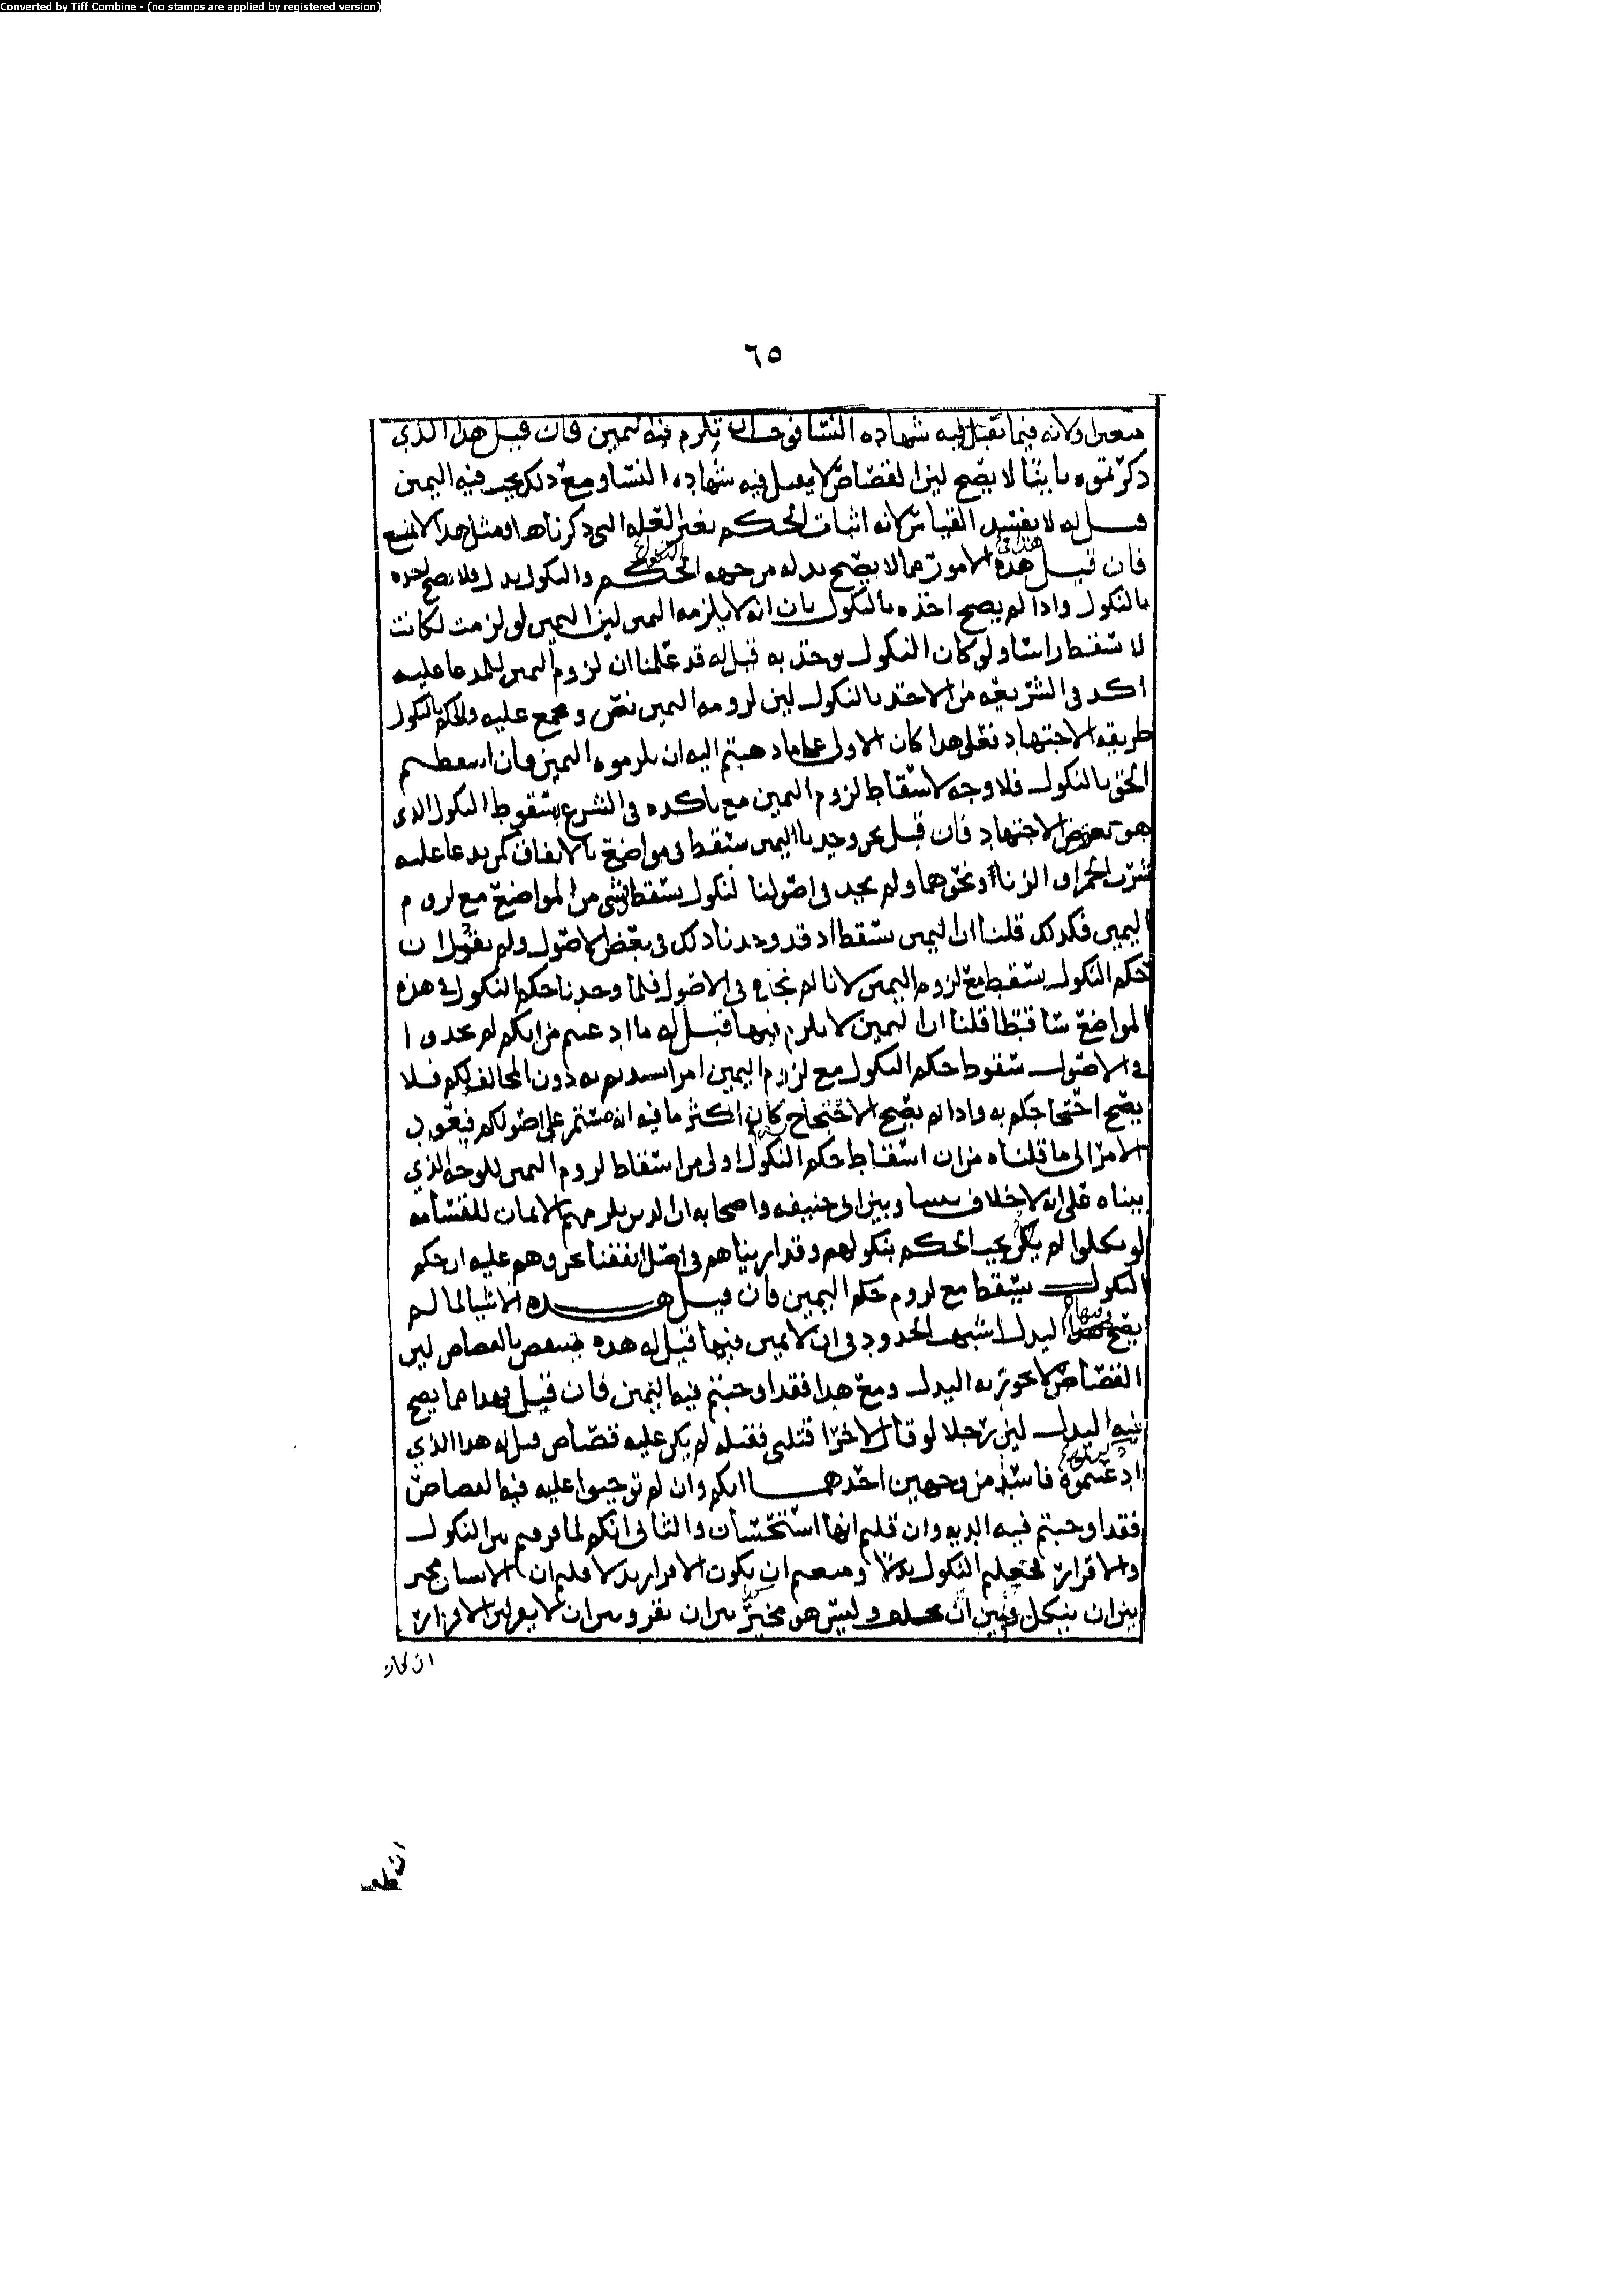 Converted by Tiff Combine - (no stamps are applied by registered version)
٦٥
ولانه فيما تقبل فيه شهاده النسا فوجب ان تلزم فيه اليمين فان قيل هذا الذي
ذكرتموه لا يصح لين القصاص لا يقبل فيه شهاده النسا ومع ذلك يجب فيه اليمين
قيل له لا يفسد القياس لانه اثبات الحكم بغير العله التى ذكرناها ومثل هذا لا يمنع
فان قيل هذه الامور مما لا يصح بدله من جهه الحكم والنكول بدل فلا يصح اخذه
بالنكول واذا لم يصح اخذه بالنكول بان انه لا يلزمه اليمين لين اليمين لو لزمت لكانت
لا تسقط راسا ولو كان النكول يوخذ به قيل له قد علمنا ان لزوم اليمين للمدعا عليه
اكد فى الشريعه من الاخذ بالنكول لين لزومه اليمين نص ومجمع عليه والحكم بالنكول
طريقه الاجتهاد فعلى هذا كان الاولى على ما ذهبتم اليه ان يلزموه اليمين وان اسقطتم
الحق بالنكول فلا وجه لاسقاط لزوم اليمين مع تاكده فى الشرع بسقوط النكول الذى
هو الاجتهاد فان قيل نحن وجدنا اليمين سقط فى مواضع بالاتفاق كمن يدعا عليه
شرب الخمر او الزنا او نحوهما ولم نجد فى اصولنا نكول يسقط فى شى من المواضع مع لزوم
اليمين فكذلك قلنا ان اليمين سقط اذ قد وجدنا ذلك فى بعض الاصول ولم نقول ان
حكم النكول يسقط مع لزوم اليمين لانا لم نجده فى الاصول فلما وجدنا حكم النكول فى هذه
المواضع ساقطا قلنا ان اليمين لا يلزم فيها قيل له ما ادعيتم من انكم لم تجدوا
فى الاصول سقوط حكم النكول مع لزوم اليمين امر به دون المخالف لكم فلا
يصح احتجاجكم به واذا لم يصح الاحتجاج كان اكثر ما فيه انه مستمر على اصولكم فيعود
الامر الى ما قلناه من ان اسقاط حكم النكول اولى من اسقاط لزوم اليمين للوجه الذي
بيناه على انه لا خلاف بيننا وبين ابى حنيفه واصحابه ان الذين يلزمهم الايمان للقسامه
لو نكلوا لم يكن يجب الحكم بنكولهم وقد اريناهم فى اصل اتفقنا نحن وهم عليه ان حكم
النكول يسقط مع لزوم حكم اليمين فان قيل هذه الاشيا لما لم
يصح فيها البدل اشبهت الحدود فى ان لا يمين فيها قيل له هذه ينتقض بالقصاص لين
القصاص لا يجوز به البدل ومع هذا فقد اوجبتم فيه اليمين فان قيل فهذا مما يصح
فيه البدل لين رجلا لو قال لاخر اقتلنى فقتله لم يكن عليه قصاص قيل له هذا الذي
ادعيتموه فاسد من وجهين احدهما انكم وان لم توجبوا عليه فيه القصاص
فقد اوجبتم فيه الديه وان قلتم انها استحسان والثانى انكم لما فرقتم بين النكول
والاقرار فجعلتم النكول بدلا ومنعتم ان يكون الاقرار بدلا قلتم ان الانسان مخير
بين ان ينكل وبين ان يحلف وليس هو مخير بين ان يقر وبين ان لا يقر لين الاقرار
ان كان